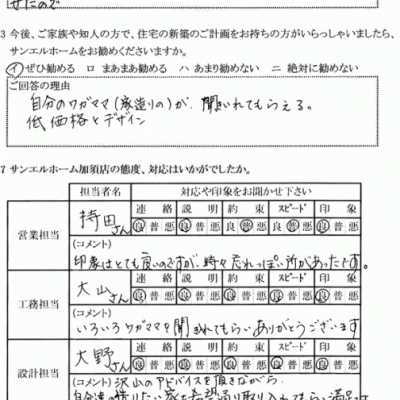 せたので
3 今後、ご家族や知人の方で、住宅の新築のご計画をお持ちの方がいらっしゃいましたら、
サンエルホームをお勧めくださいますか。
イ ぜひ勧める ロ まあまあ勧める ハ あまり勧めない ニ 絶対に勧めない
ご回答の理由
自分のワガママ(家造りの)が、聞きいれてもらえる。
低価格とデザイン
7 サンエルホーム加須店の態度、対応はいかがでしたか。
担当者名 対応や印象をお聞かせ下さい
営業担当 持田さん 連絡 説明 約束 スピード 印象
良 普 悪 良 普 悪 良 普 悪 良 普 悪 良 普 悪
(コメント)
印象はとても良いのですが、時々忘れっぽい所があったです。
工務担当 大山さん 連絡 説明 約束 スピード 印象
良 普 悪 良 普 悪 良 普 悪 良 普 悪 良 普 悪
(コメント)
いろいろワガママを聞きいれてもらいありがとうございます
設計担当 大野さん 連絡 説明 約束 スピード 印象
良 普 悪 良 普 悪 良 普 悪 良 普 悪 良 普 悪
(コメント) 沢山のアドバイスを頂きながら、
自分達の造りたい家を希望通り取り入れてもらい満足